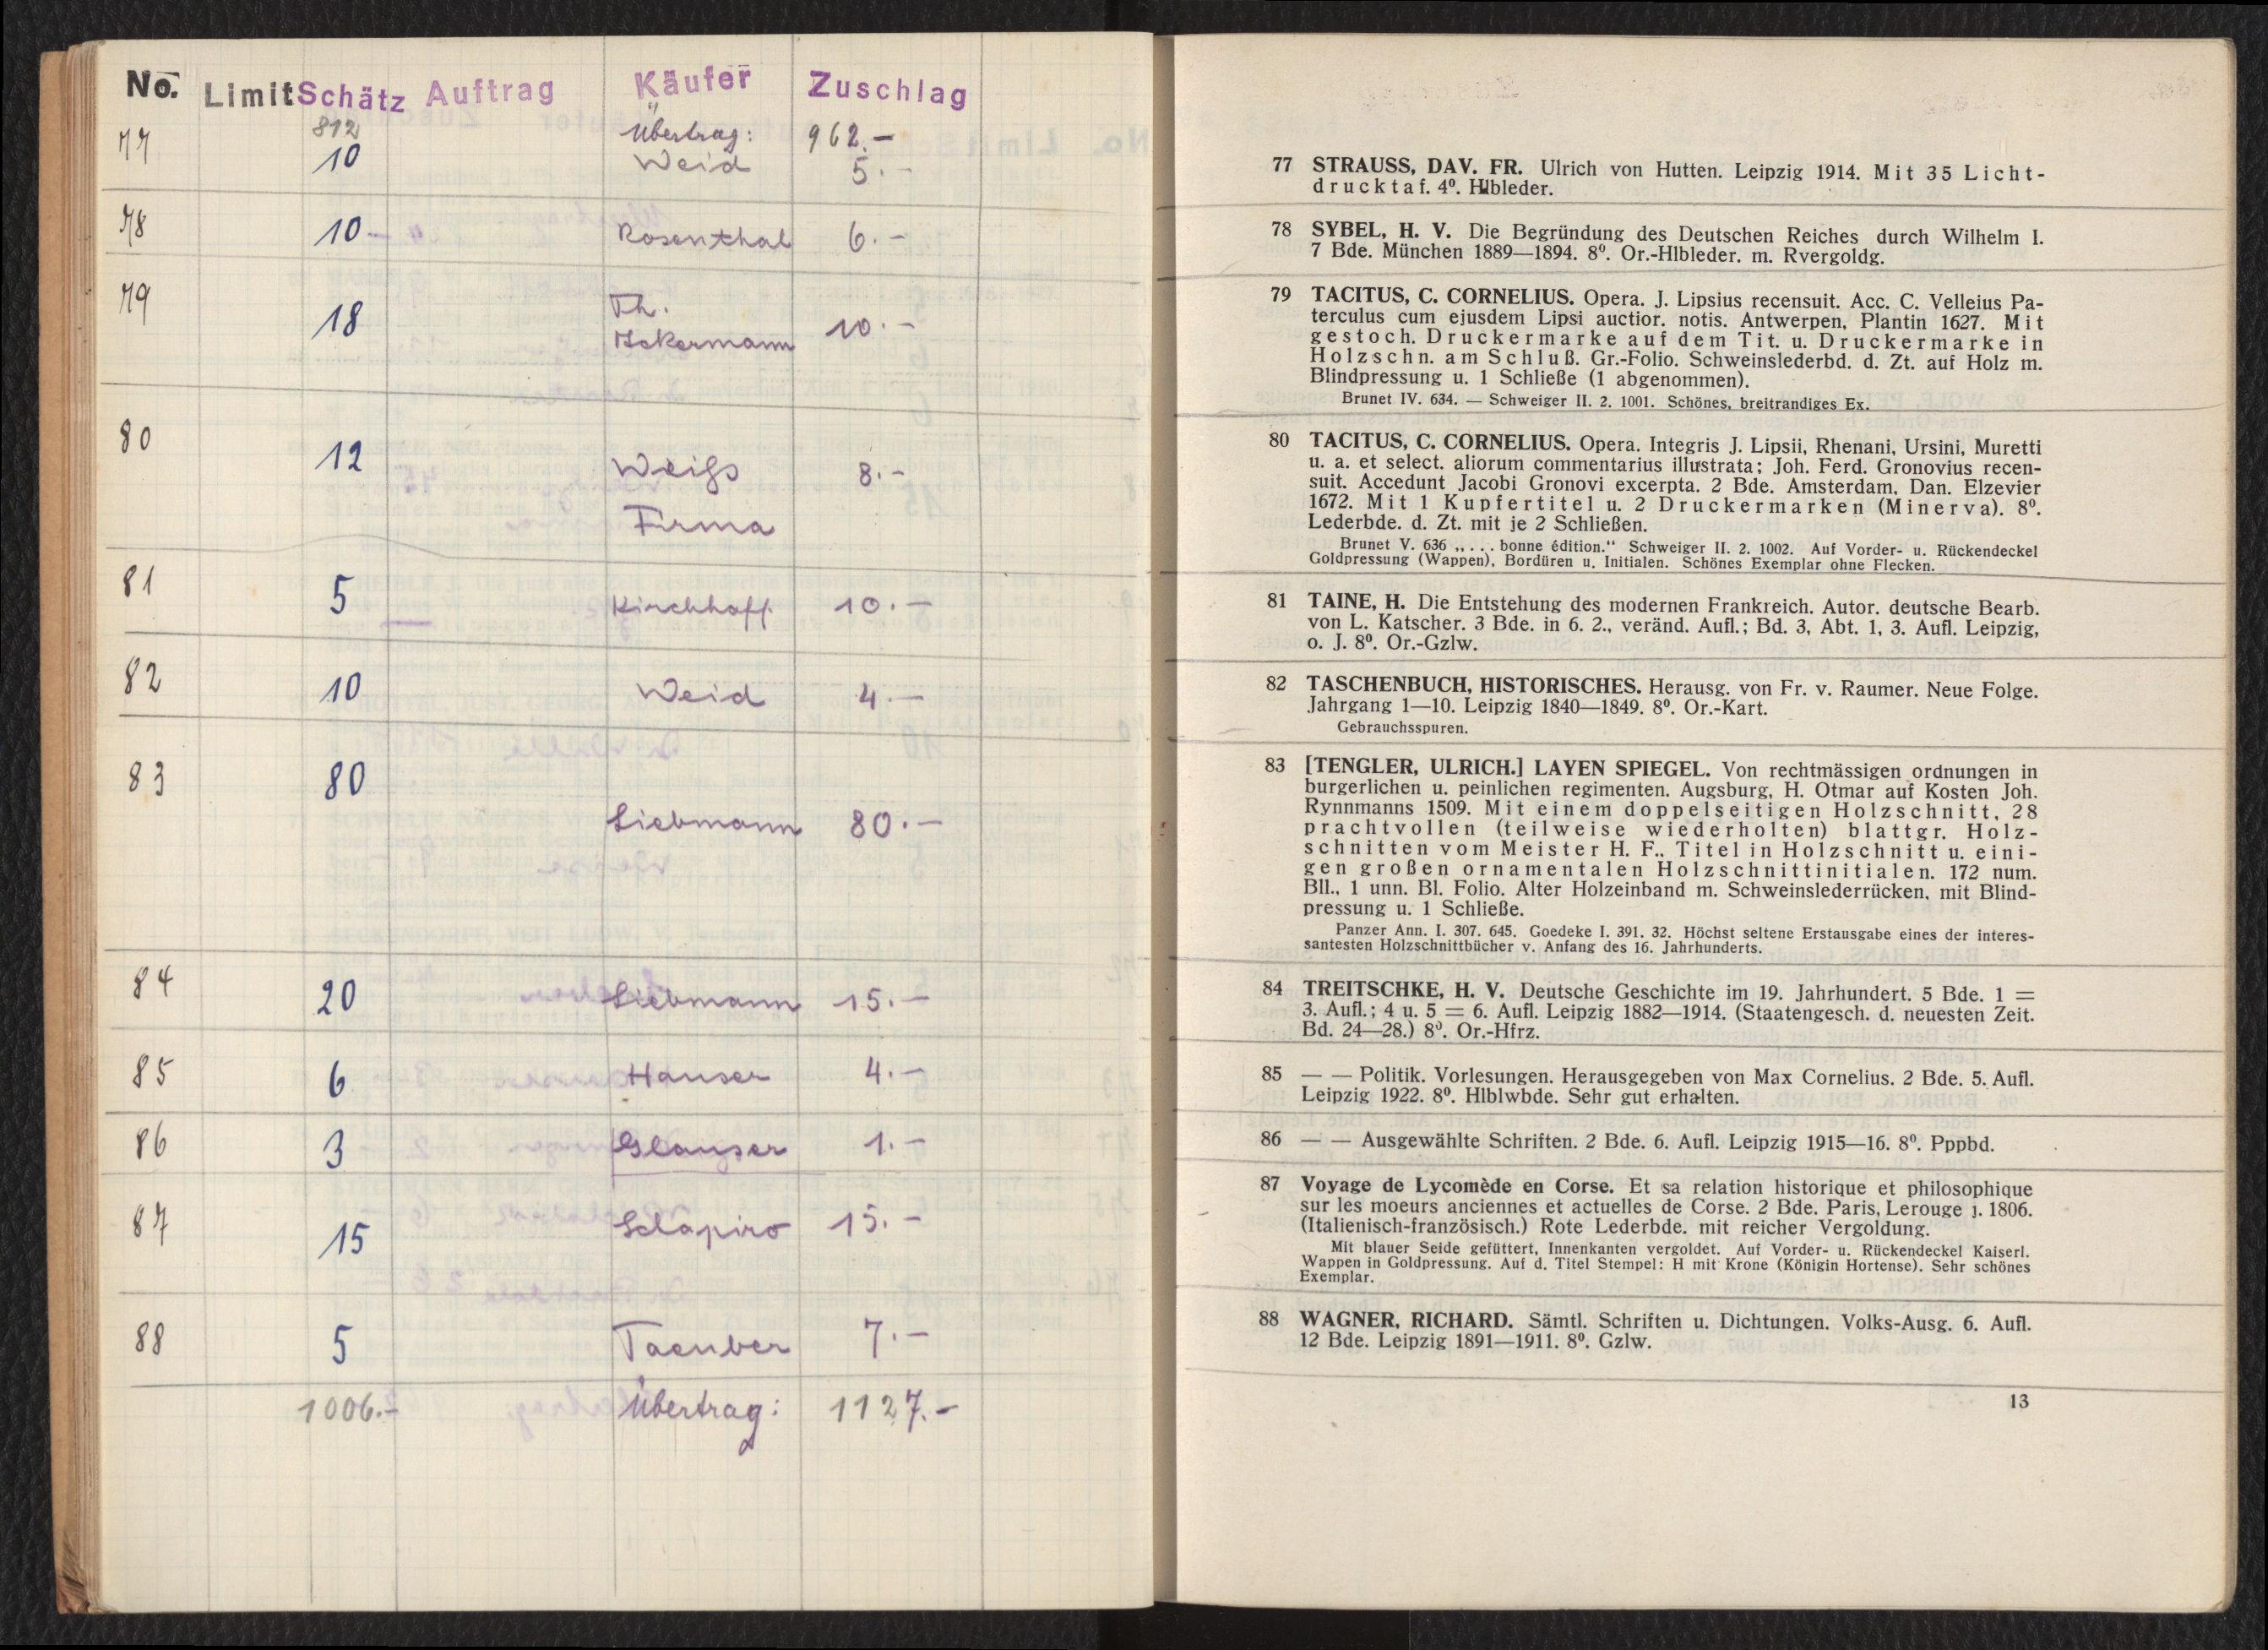 No. Limit Schätz Auftrag Käufer Zuschlag
812 Übertrag: 962.-
77 10 Weid 5.-
78 10 Rosenthal 6.-
79 18 Th.
Ackermann 10.-
80 12 Weiss 8.-
Firma
81 5 Kirchhoff 10.-
82 10 Weid 4.-
83 80 Liebmann 80.-
84 20 Liebmann 15.-
85 6 Hauser 4.-
86 3 Glauser 1.-
87 15 Schapiro 15.-
88 5 Taeuber 7.-
1006.- Übertrag: 1127.-
77 STRAUSS, DAV. FR. Ulrich von Hutten. Leipzig 1914. Mit 35 Licht-
drucktaf. 4⁰. Hlbleder.
78 SYBEL, H. V. Die Begründung des Deutschen Reiches durch Wilhelm I.
7 Bde. München 1889—1894. 8⁰. Or.-Hlbleder. m. Rvergoldg.
79 TACITUS, C. CORNELIUS. Opera. J. Lipsius recensuit. Acc. C. Velleius Pa-
terculus cum ejusdem Lipsi auctior. notis. Antwerpen, Plantin 1627. Mit
gestoch. Druckermarke auf dem Tit. u. Druckermarke in
Holzschn. am Schluß. Gr.-Folio. Schweinslederbd. d. Zt. auf Holz m.
Blindpressung u. 1 Schließe (1 abgenommen).
Brunet IV. 634. — Schweiger II. 2. 1001. Schönes, breitrandiges Ex.
80 TACITUS, C. CORNELIUS. Opera. Integris J. Lipsii, Rhenani, Ursini, Muretti
u. a. et select. aliorum commentarius illustrata; Joh. Ferd. Gronovius recen-
suit. Accedunt Jacobi Gronovi excerpta. 2 Bde. Amsterdam, Dan. Elzevier
1672. Mit 1 Kupfertitel u. 2 Druckermarken (Minerva). 8⁰.
Lederbde. d. Zt. mit je 2 Schließen.
Brunet V. 636 „. . . bonne édition.“ Schweiger II. 2. 1002. Auf Vorder- u. Rückendeckel
Goldpressung (Wappen), Bordüren u. Initialen. Schönes Exemplar ohne Flecken.
81 TAINE, H. Die Entstehung des modernen Frankreich. Autor. deutsche Bearb.
von L. Katscher. 3 Bde. in 6. 2., veränd. Aufl.; Bd. 3, Abt. 1, 3. Aufl. Leipzig,
o. J. 8⁰. Or.-Gzlw.
82 TASCHENBUCH, HISTORISCHES. Herausg. von Fr. v. Raumer. Neue Folge.
Jahrgang 1—10. Leipzig 1840—1849. 8⁰. Or.-Kart.
Gebrauchsspuren.
83 [TENGLER, ULRICH.] LAYEN SPIEGEL. Von rechtmässigen ordnungen in
burgerlichen u. peinlichen regimenten. Augsburg, H. Otmar auf Kosten Joh.
Rynnmanns 1509. Mit einem doppelseitigen Holzschnitt, 28
prachtvollen (teilweise wiederholten) blattgr. Holz-
schnitten vom Meister H. F.. Titel in Holzschnitt u. eini-
gen großen ornamentalen Holzschnittinitialen. 172 num.
Bll., 1 unn. Bl. Folio. Alter Holzeinband m. Schweinslederrücken, mit Blind-
pressung u. 1 Schließe.
Panzer Ann. I. 307. 645. Goedeke I. 391. 32. Höchst seltene Erstausgabe eines der interes-
santesten Holzschnittbücher v. Anfang des 16. Jahrhunderts.
84 TREITSCHKE, H. V. Deutsche Geschichte im 19. Jahrhundert. 5 Bde. 1 =
3. Aufl.; 4 u. 5 = 6. Aufl. Leipzig 1882—1914. (Staatengesch. d. neuesten Zeit.
Bd. 24—28.) 8⁰. Or.-Hfrz.
85 — — Politik. Vorlesungen. Herausgegeben von Max Cornelius. 2 Bde. 5. Aufl.
Leipzig 1922. 8⁰. Hlblwbde. Sehr gut erhalten.
86 — — Ausgewählte Schriften. 2 Bde. 6. Aufl. Leipzig 1915—16. 8⁰. Pppbd.
87 Voyage de Lycomède en Corse. Et sa relation historique et philosophique
sur les moeurs anciennes et actuelles de Corse. 2 Bde. Paris, Lerouge j. 1806.
(Italienisch-französisch.) Rote Lederbde. mit reicher Vergoldung.
Mit blauer Seide gefüttert, Innenkanten vergoldet. Auf Vorder- u. Rückendeckel Kaiserl.
Wappen in Goldpressung. Auf d. Titel Stempel: H mit Krone (Königin Hortense). Sehr schönes
Exemplar.
88 WAGNER, RICHARD. Sämtl. Schriften u. Dichtungen. Volks-Ausg. 6. Aufl.
12 Bde. Leipzig 1891—1911. 8⁰. Gzlw.
13